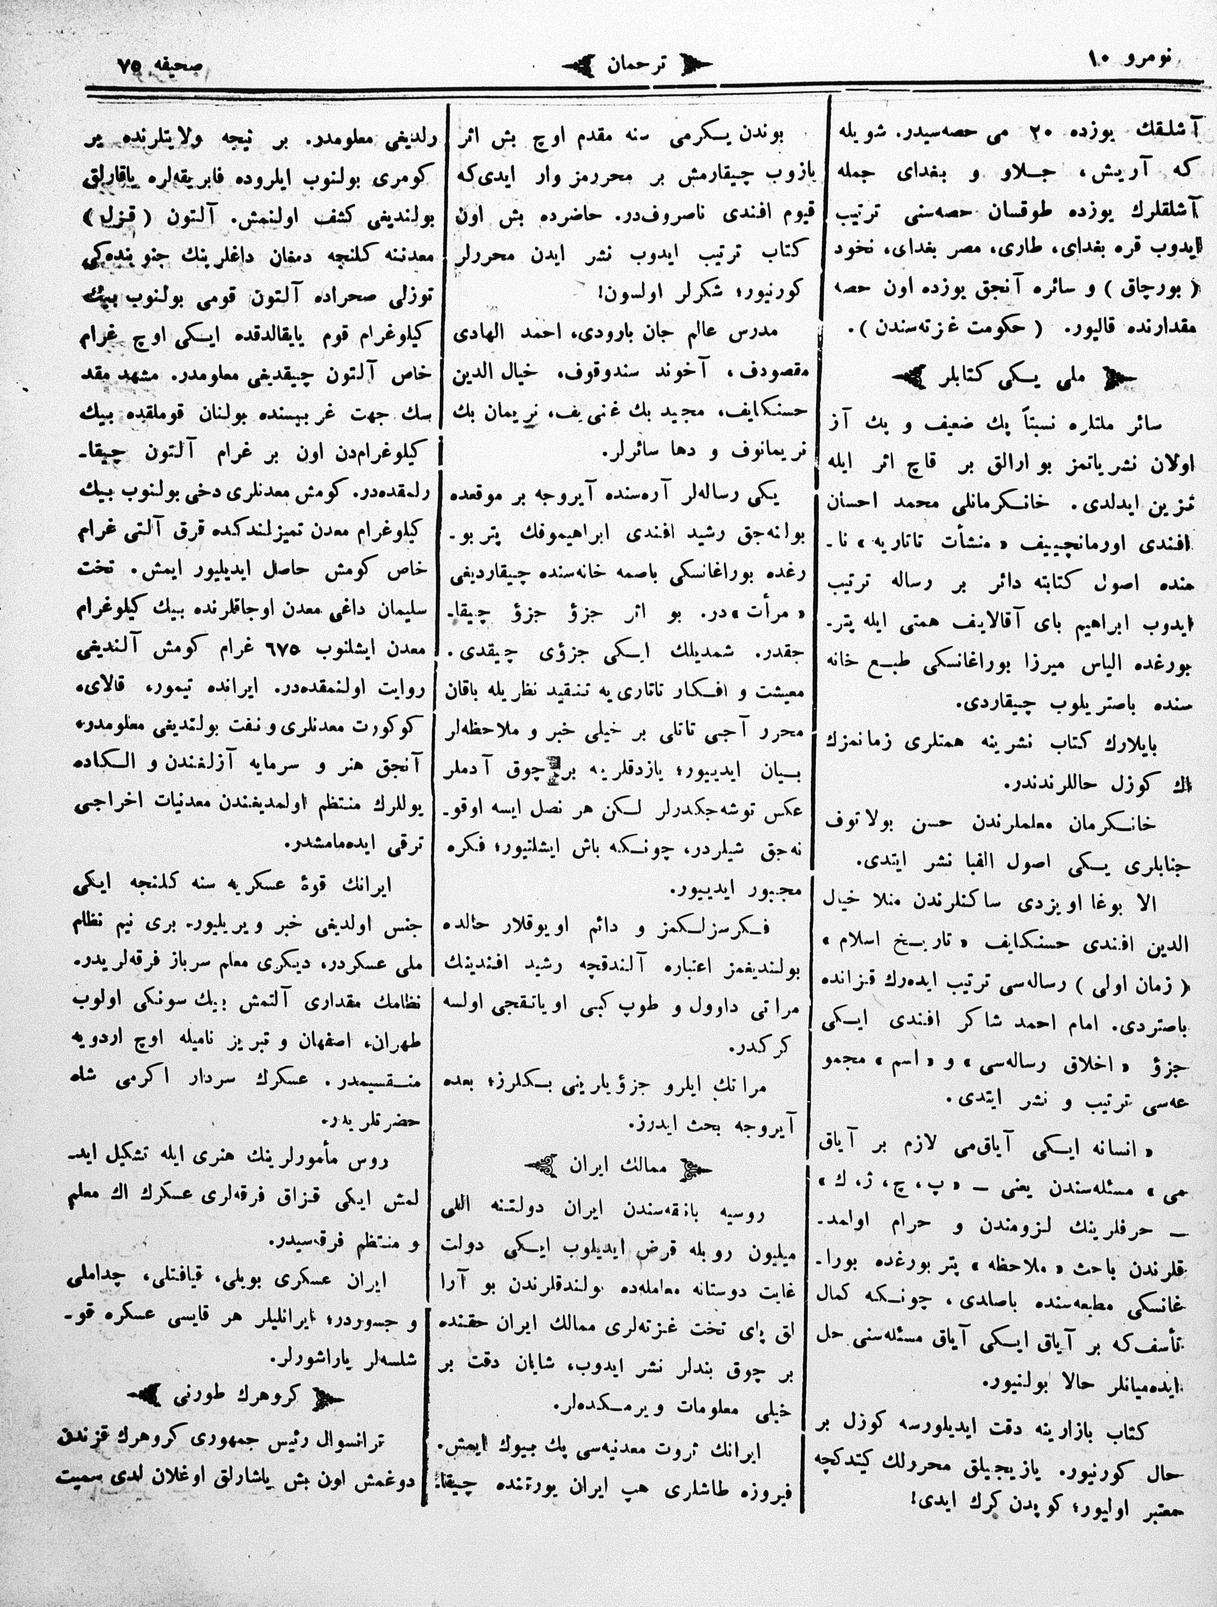 نومرو ١٠
ترجمان
صحيفه ٧٥
آشلقك يوزده ٢٠ مى حصه‌سيدر. شويله
كه آريش، جلاو و بغداى جمله
آشلقلرك يوزده طوقسان حصه‌سنى ترتيب
ايدوب قره بغداى، طارى، مصر بغداى، نخود
( بورچاق ) و سائره آنجق يوزده اون حصه
مقدارنده قاليور. ( حكومت غزته‌سندن ).
ملى يكى كتابلر
سائر ملتلره نسبتاً پك ضعيف و پك آز
اولان نشرياتمز بو ارالق بر قاچ اثر ايله
تزين ايدلدى. خانكرمانلى محمد احسان
افندى اورمانچييف « منشأت تاتاريه » نا-
منده اصول كتابته دائر بر رساله ترتيب
ايدوب ابراهيم باى آقالايف همتى ايله پتر-
بورغده الياس ميرزا بوراغانسكى طبع خانه
سنده باصتريلوب چيقاردى.
بايلارك كتاب نشرينه همتلرى زمانمزك
اك كوزل حاللرندندر.
خانكرمان معلملرندن حسن بولاتوف
جنابلرى يكى اصول الفبا نشر ايتدى.
الا بوغا اويزدى ساكنلرندن منلا خيال
الدين افندى حسنكايف « تاريخ اسلام »
( زمان اولى ) رساله‌سى ترتيب ايده‌رك قزانده
باصتردى. امام احمد شاكر افندى ايكى
جزؤ « اخلاق رساله‌سى » و « اسم » مجمو
عه‌سى ترتيب و نشر ايتدى.
« انسانه ايكى آياق‌مى لازم بر آياق
مى » مسئله‌سندن يعنى — « پ، چ، ژ، ك »
— حرفلرينك لزومندن و حرام اولمد-
قلرندن باحث « ملاحظه » پتربورغده بورا-
غانسكى مطبعه‌سنده باصلدى، چونكه كمال
تأسف‌كه بر آياق ايكى آياق مسئله‌سنى حل
ايده‌ميانلر حالا بولنيور.
كتاب بازارينه دقت ايديلورسه كوزل بر
حال كورنيور. يازيجيلق محررلك كيتدكچه
معتبر اوليور؛ كوپدن كرك ايدى!
بوندن يكرمى سنه مقدم اوچ بش اثر
يازوب چيقارمش بر محررمز وار ايدى‌كه
قيوم افندى ناصروف‌در. حاضرده بش اون
كتاب ترتيب ايدوب نشر ايدن محررلر
كورنيور؛ شكرلر اولسون!
مدرس عالم جان بارودى، احمد الهادى
مقصودف، آخوند سندوقوف، خيال الدين
حسنكايف، مجيد بك غنى‌يف، نريمان بك
نريمانوف و دها سائرلر.
يكى رساله‌لر آره‌سنده آيروجه بر موقعده
بولنه‌جق رشيد افندى ابراهيموفك پتربو-
رغده بوراغانسكى باصمه خانه‌سنده چيقارديغى
« مرأت » در. بو اثر جزؤ جزؤ چيقا-
جقدر. شمديلك ايكى جزؤى چيقدى.
معيشت و افكار تاتاريه تنقيد نظريله باقان
محرر آجى تاتلى بر خيلى خبر و ملاحظه‌لر
بيان ايدييور؛ يازدقلرينه بر چوق آدملر
عكس توشه‌جكدرلر لكن هر نصل ايسه اوقو-
نه‌جق شيلردر، چونكه باش ايشلتيور؛ فكره
مجبور ايدييور.
فكرسزلكمز و دائم اويوقلار حالده
بولنديغمز اعتباره آلندقچه رشيد افندينك
مراتى داوول و طوپ كبى اوياتقجى اولسه
كركدر.
مراتك ايلرو جزؤيلرينى بكلرز؛ بعده
آيروجه بحث ايدرز.
ممالك ايران
روسيه بانقه‌سندن ايران دولتنه اللى
ميليون روبله قرض ايديلوب ايكى دولت
غايت دوستانه معامله‌ده بولندقلرندن بو آرا
لق پاى تخت غزته‌لرى ممالك ايران حقنده
بر چوق بندلر نشر ايدوب، شايان دقت بر
خيلى معلومات ويرمكده‌لر.
ايرانك ثروت معدنيه‌سى پك بيوك ايمش.
فيروزه طاشلرى هپ ايران يورتنده چيقا-
رلديغى معلومدر. بر نيجه ولايتلرنده ير
كومرى بولنوب ايلروده فابريقه‌لره ياقارلق
بولنديغى كشف اولنمش. آلتون ( قزل )
معدننه كلنجه دمغان داغلرينك جنوبنده‌كى
توزلى صحراده آلتون قومى بولنوب بيك
كيلوغرام قوم يايقالدقده ايكى اوچ غرام
خاص آلتون چيقديغى معلومدر. مشهد مقد
سك جهت غربيسنده بولنان قوملقده بيك
كيلوغرام‌دن اون بر غرام آلتون چيقا-
رلمقده‌در. كومش معدنلرى دخى بولنوب بيك
كيلوغرام معدن تميزلندكده قرق آلتى غرام
خاص كومش حاصل ايديليور ايمش. تخت
سليمان داغى معدن اوجاقلرنده بيك كيلوغرام
معدن ايشلنوب ٦٧٥ غرام كومش آلنديغى
روايت اولنمقده‌در. ايرانده تيمور، قالاى،
كوكورت معدنلرى و نفت بولنديغى معلومدر،
آنجق هنر و سرمايه آزلغندن و الكاده
يوللرك منتظم اولمديغندن معدنيات اخراجى
ترقى ايده‌مامشدر.
ايرانك قوۀ عسكريه سنه كلنجه ايكى
جنس اولديغى خبر ويريليور. برى نيم نظام
ملى عسكردر، ديكرى معلم سرباز فرقه‌لريدر.
نظامك مقدارى آلتمش بيك سونكى اولوب
طهران، اصفهان و تبريز ناميله اوچ اردويه
منقسيمدر. عسكرك سردار اكرمى شاه
حضرتلريدر.
روس مأمورلرينك هنرى ايله تشكيل ايد-
لمش ايكى قزاق فرقه‌لرى عسكرك اك معلم
و منتظم فرقه‌سيدر.
ايران عسكرى بويلى، قيافتلى، چداملى
و جسوردر؛ ايرانليلر هر قايسى عسكره قو-
شلسه‌لر ياراشورلر.
كروهرك طورنى
ترانسوال رئيس جمهورى كروهرك قزندن
دوغمش اون بش ياشارلق اوغلان لدى سميت